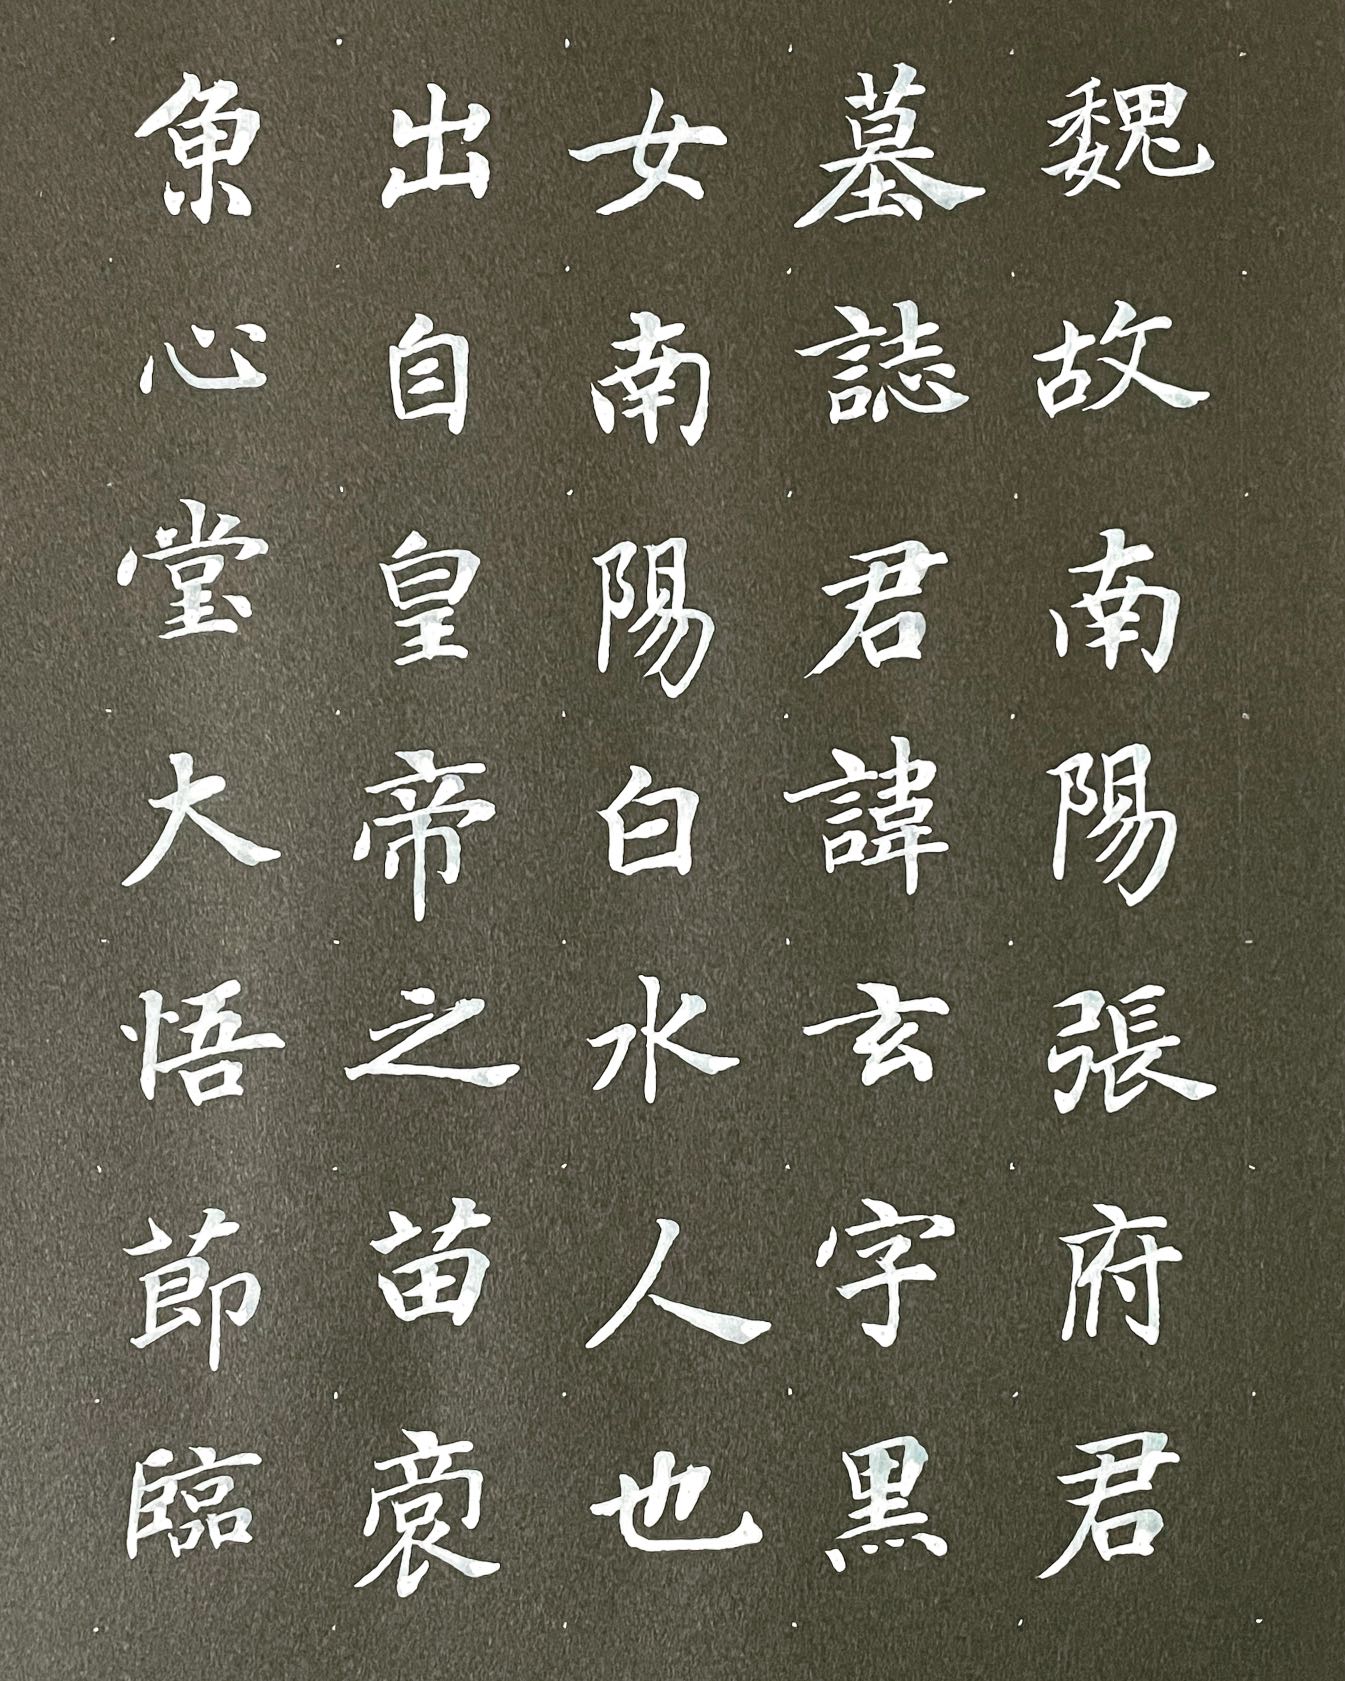 魏故南陽張府君
墓誌君諱玄字黑
女南陽白水人也
出自皇帝之苗裔
𩵋心堂大悟莭臨